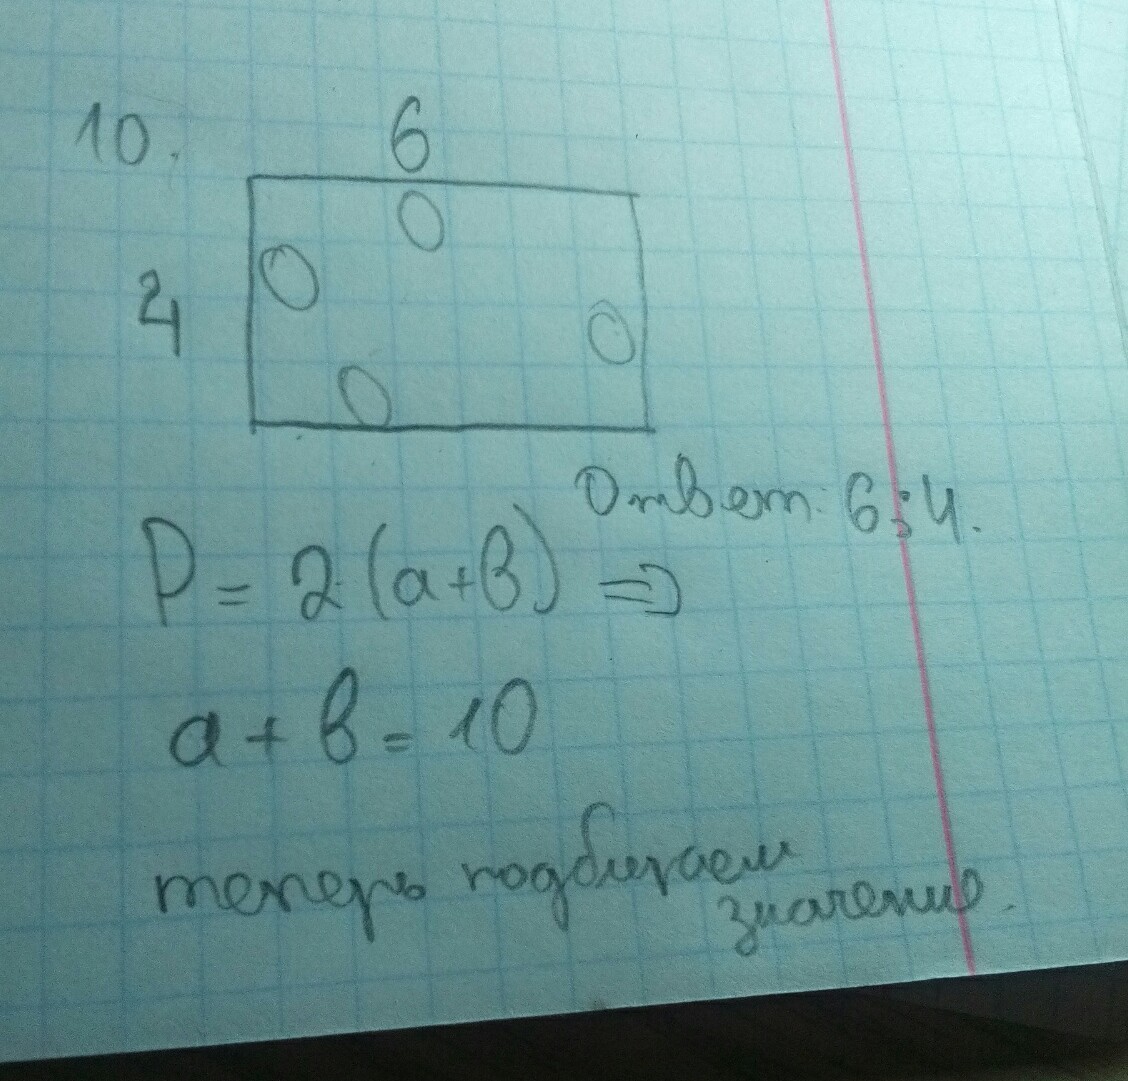 10.
6
4
Ответ: 6; 4.
P = 2·(a+b) ⇒
a + b = 10
теперь подбираем
значение.